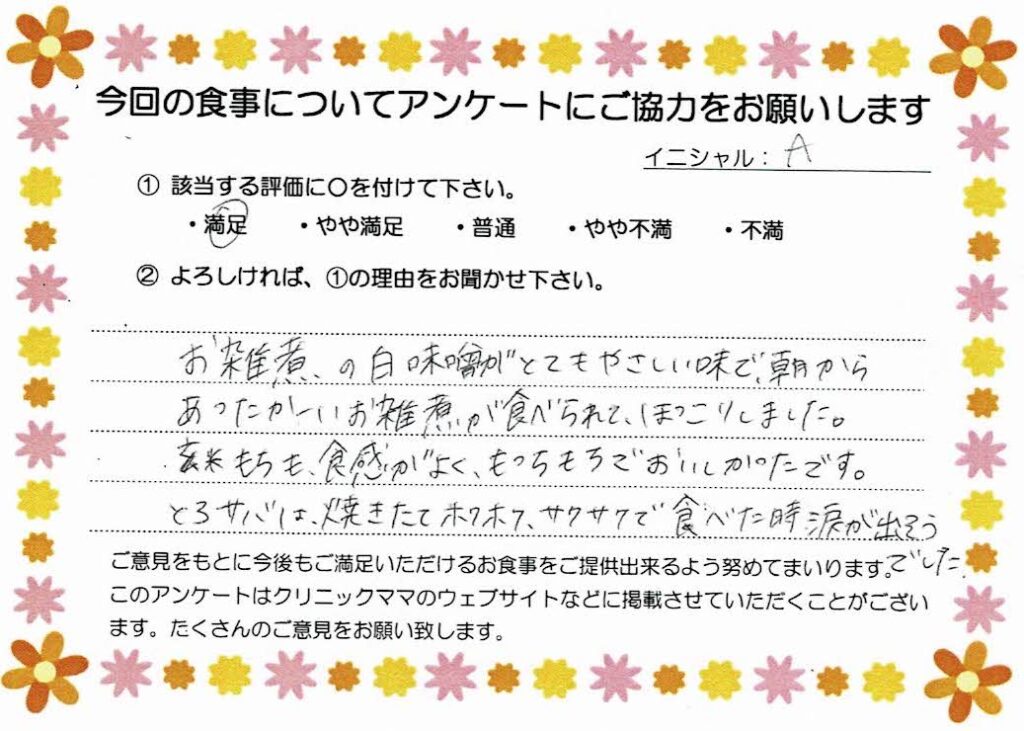 今回の食事についてアンケートにご協力をお願いします
イニシャル： A
① 該当する評価に〇を付けて下さい。
・満足 ・やや満足 ・普通 ・やや不満 ・不満
② よろしければ、①の理由をお聞かせ下さい。
お雑煮、の白味噌がとてもやさしい味で、朝から
あったかーいお雑煮が食べられて、ほっこりしました。
玄米もちも、食感がよく、もっちもちでおいしかったです。
とろサバは、焼きたてホクホク、サクサクで食べた時涙が出そう
でした。
ご意見をもとに今後もご満足いただけるお食事をご提供出来るよう努めてまいります。
このアンケートはクリニックママのウェブサイトなどに掲載させていただくことがござい
ます。たくさんのご意見をお願い致します。